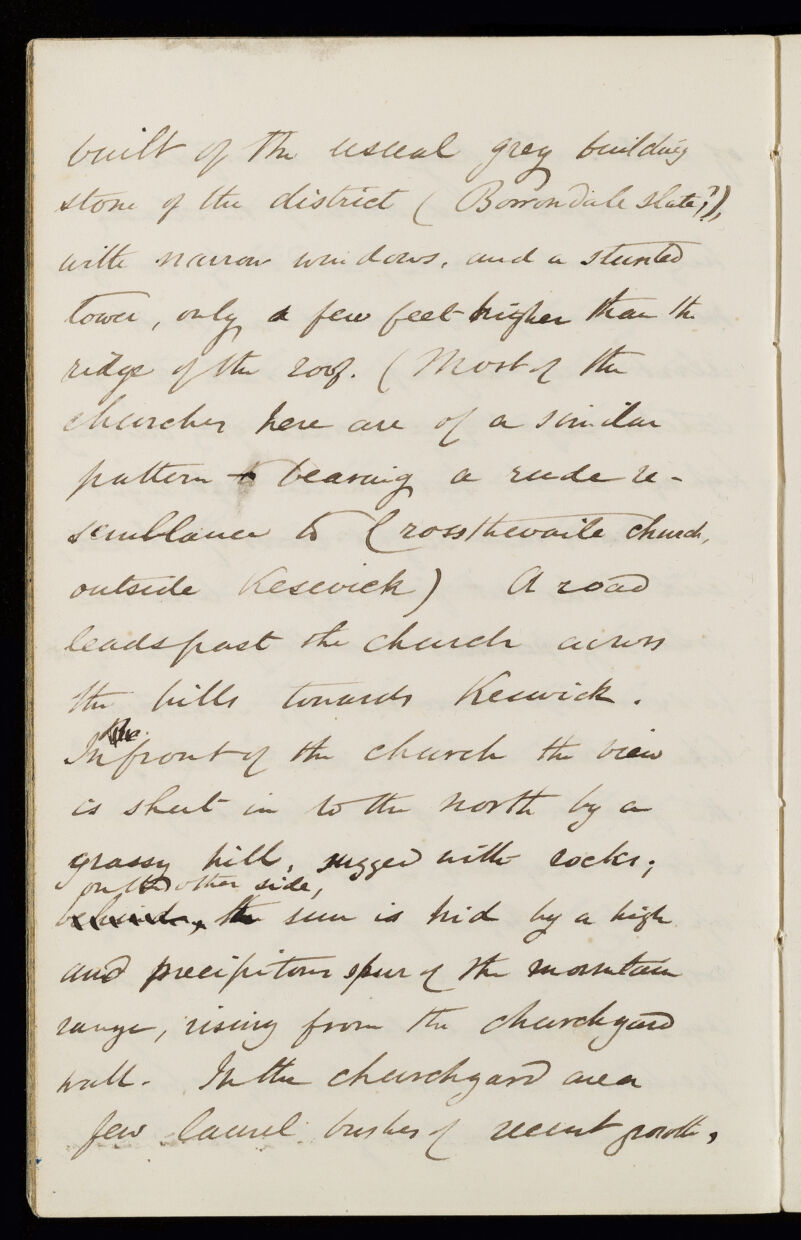 built of the usual grey building
stone of the district (Borrondale slate?),
with narrow windows, and a stunted
tower, only a few feet higher than the
ridge of the roof. (Most of the
churches here are of a similar
pattern bearing a rude re-
semblance to Crossthwaite church,
outside Keswick) A road
leads past the church across
the hills towards Keswick.
In front of the church the view
is shut in to the north by a
grassy hill, rugged with rocks;
on the other side,
behind, the sun is hid by a high
and precipitous spur of the mountain
range, rising from the churchyard
wall. In the churchyard are a
few laurel bushes of recent growth,